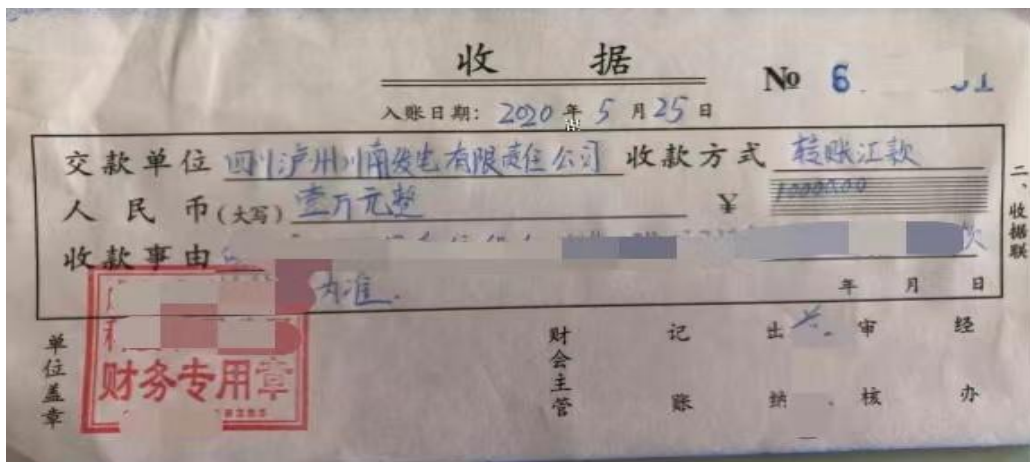 收据
№ 6
入账日期：2020年5月25日
交款单位 四川泸州川南发电有限责任公司 收款方式 转账汇款
人民币(大写) 壹万元整 ¥ 1000000
收款事由 款
为准.
年 月 日
二、收据联
单位盖章
财务专用章
财会主管
记账
出纳
审核
经办